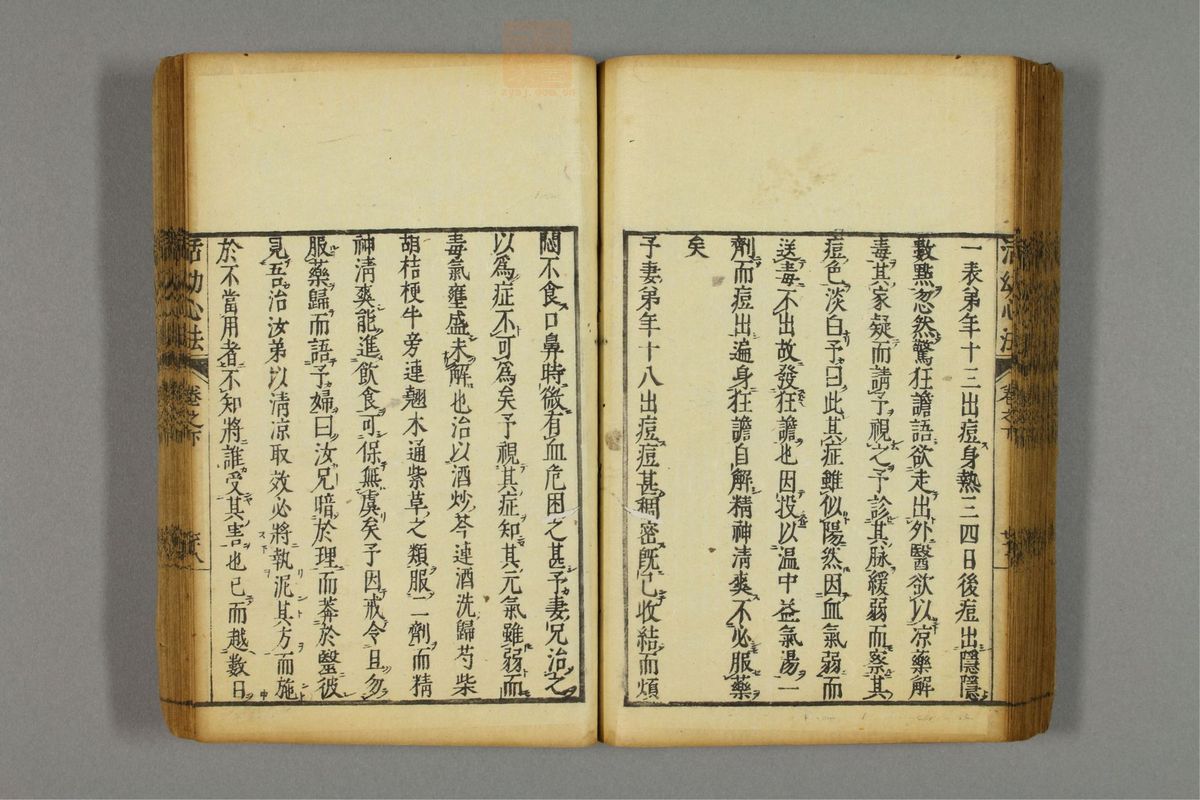 一表弟年十三出痘身熱三四日後痘出隱隱
數點忽然驚狂譫語欲走出外醫欲以凉藥解
毒其家疑而請予視之予診其脉緩弱而察其
痘色淡白予曰此其症雖似陽然因血氣弱而
送毒不出故發狂譫也因投以温中益氣湯一
劑而痘出遍身狂譫自解精神清爽不必服藥
矣
予妻弟年十八出痘痘甚稠密既已收結而煩
悶不食口鼻時微有血危困之甚予妻兄治之
以為症不可為矣予視其症知其元氣雖弱而
毒氣壅盛未解也治以酒炒芩連酒洗歸芍柴
胡桔梗牛旁連翹木通紫草之類服二劑而精
神清爽能進飲食可保無虞矣予因戒令且勿
服藥歸而語予婦曰汝兄暗於理而莽於毉彼
見吾治汝弟以清凉取效必將執泥其方而施
於不當用者不知將誰受其害也已而越數日
活幼心法
卷之下
活幼心法
卷之下